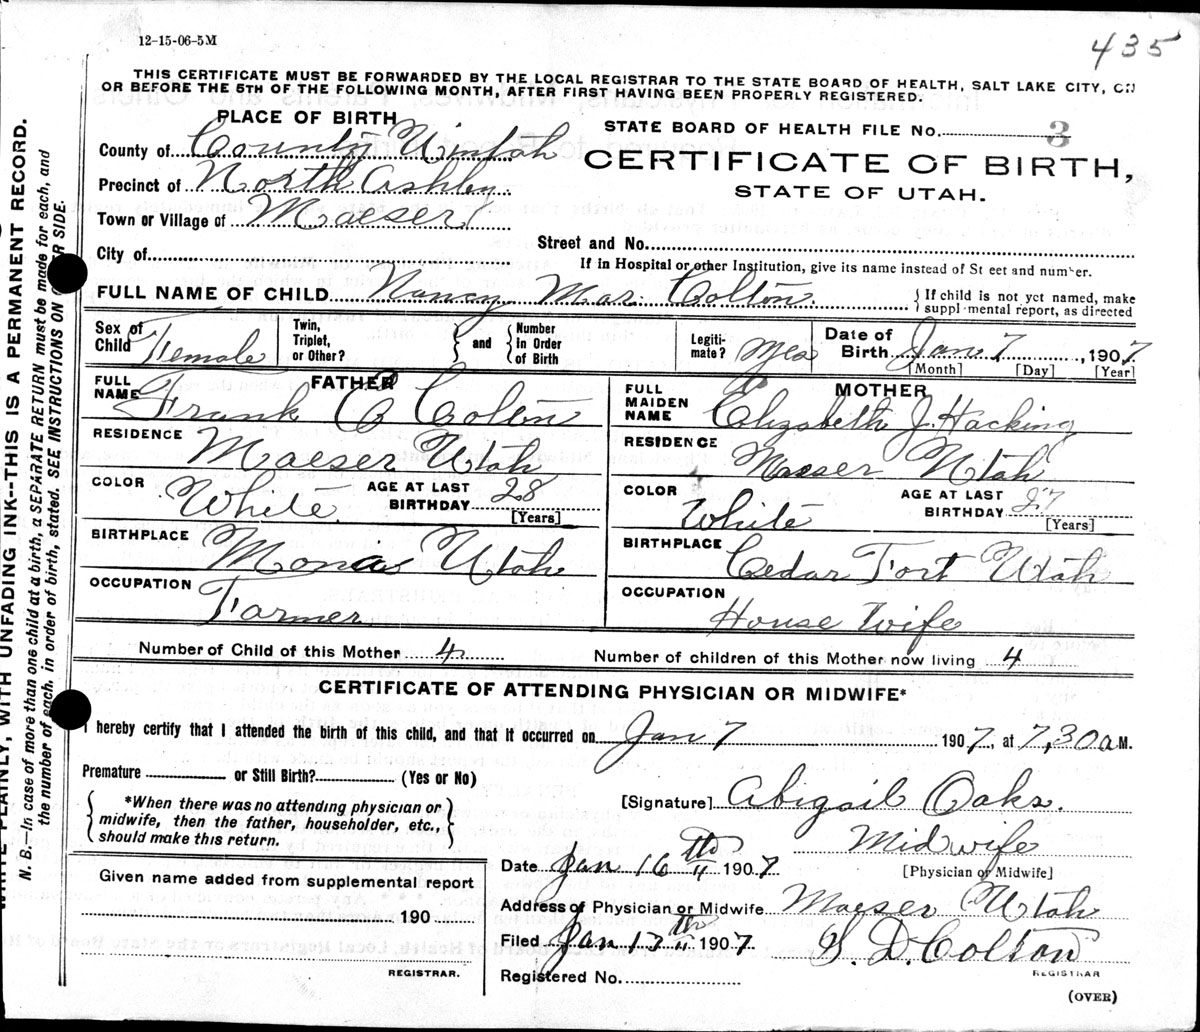 12-15-06-5M
435
THIS CERTIFICATE MUST BE FORWARDED BY THE LOCAL REGISTRAR TO THE STATE BOARD OF HEALTH, SALT LAKE CITY, ON
OR BEFORE THE 5TH OF THE FOLLOWING MONTH, AFTER FIRST HAVING BEEN PROPERLY REGISTERED.
PLACE OF BIRTH
STATE BOARD OF HEALTH FILE No. 3
County of County Uintah
CERTIFICATE OF BIRTH,
Precinct of North Ashley
STATE OF UTAH.
Town or Village of Maeser
Street and No.
City of
If in Hospital or other Institution, give its name instead of St eet and number.
FULL NAME OF CHILD Nancy Mar Colton
If child is not yet named, make
suppl mental report, as directed
Sex of Child Female
Twin, Triplet, or Other?
and
Number in Order of Birth
Legiti-mate? Yes
Date of Birth Jan 7, 1907
[Month] [Day] [Year]
FATHER
FULL NAME Frank C Colton
MOTHER
FULL MAIDEN NAME Elizabeth J. Hacking
RESIDENCE Maeser Utah
RESIDENCE Maeser Utah
COLOR White
AGE AT LAST BIRTHDAY 28 [Years]
COLOR White
AGE AT LAST BIRTHDAY 27 [Years]
BIRTHPLACE Mona Utah
BIRTHPLACE Cedar Fort Utah
OCCUPATION Farmer
OCCUPATION House Wife
Number of Child of this Mother 4
Number of children of this Mother now living 4
CERTIFICATE OF ATTENDING PHYSICIAN OR MIDWIFE*
I hereby certify that I attended the birth of this child, and that it occurred on Jan 7 1907, at 7,30 a M.
Premature or Still Birth? (Yes or No)
*When there was no attending physician or
midwife, then the father, householder, etc.,
should make this return.
[Signature] Abigail Oaks.
Midwife
[Physician or Midwife]
Date Jan 16th 1907
Given name added from supplemental report
190
REGISTRAR.
Address of Physician or Midwife Maeser Utah
Filed Jan 17th 1907
S. D. Colton
REGISTRAR
Registered No.
(OVER)
WRITE PLAINLY, WITH UNFADING INK--THIS IS A PERMANENT RECORD.
N. B.—In case of more than one child at a birth, a SEPARATE RETURN must be made for each, and
the number of each, in order of birth, stated. SEE INSTRUCTIONS ON OTHER SIDE.